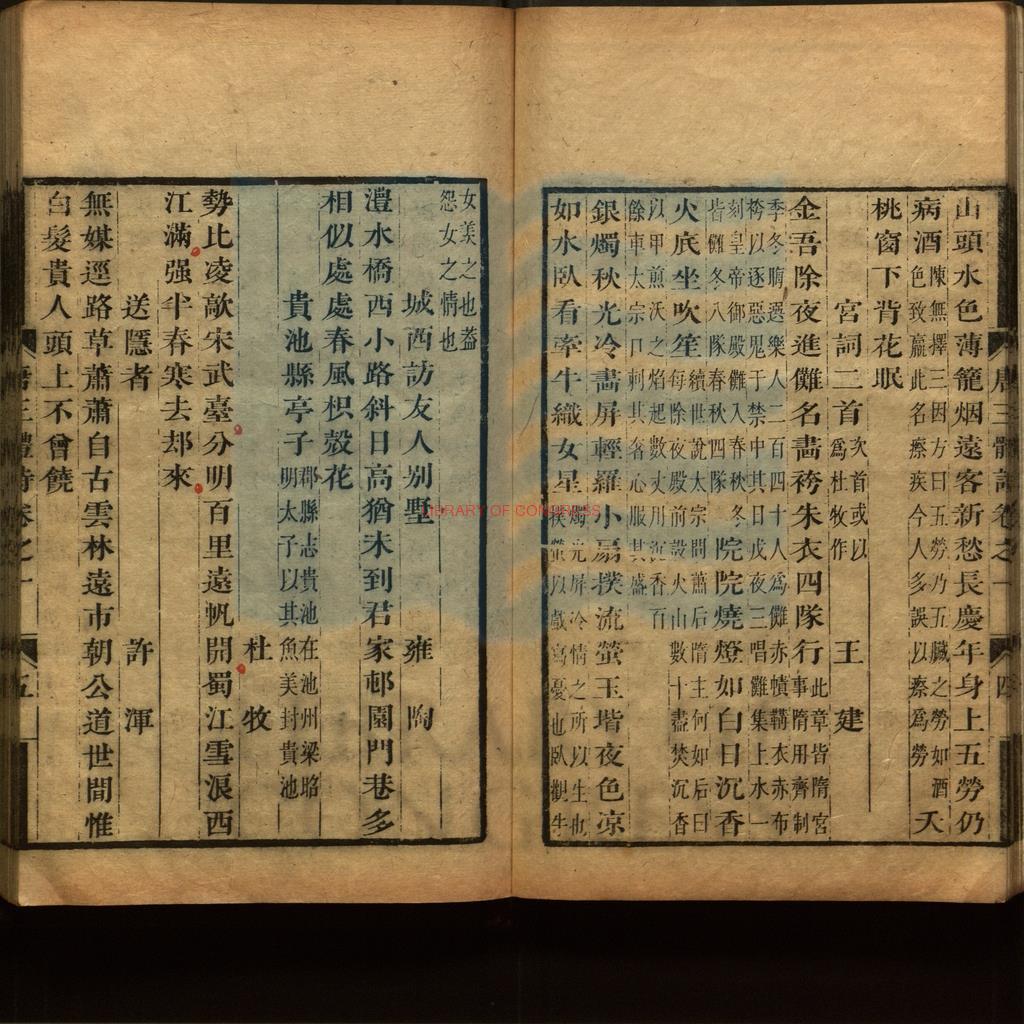 山頭水色薄籠烟遠客新愁長慶年身上五勞仍
病酒陳無擇三因方曰五勞乃五臟之勞如酒色致羸此名瘵疾今人多誤以瘵爲勞夭
桃窗下背花眠
宮詞二首次首或以爲杜牧作 王建
金吾除夜進儺名畵袴朱衣四隊行此章皆隋宮事隋用齊制
季冬晦選樂人二百四十人爲儺赤幘鞲衣赤布
袴以逐惡鬼于禁中其日戊夜三唱儺集上水一
刻皇帝御殿儺入春秋冬
皆儺冬八隊春秋四隊院院燒燈如白日沉香
火底坐吹笙續世說太宗問蕭后隋主何如后曰每除夜殿前設火山數十盡焚沉香
以甲煎沃之焰起數丈用沉香百
餘車太宗口刺其奢心服其盛
銀燭秋光冷畵屏輕羅小扇撲流螢玉堦夜色凉
如水臥看牽牛織女星燭光屏冷情之所以生也撲螢以戲寫憂也臥觀牛
唐三體詩卷之一
四
女羡之也蓋
怨女之情也
城西訪友人别墅 雍陶
澧水橋西小路斜日高猶未到君家邨園門巷多
相似處處春風枳殼花
貴池縣亭子郡縣志貴池在池州梁昭明太子以其魚美封貴池 杜牧
勢比凌歊宋武臺分明百里遠帆開蜀江雪浪西
江滿强半春寒去却來
送隱者 許渾
無媒逕路草蕭蕭自古雲林遠市朝公道世間惟
白髮貴人頭上不曾饒
唐三體詩卷之一
五
LIBRARY OF CONGRESS